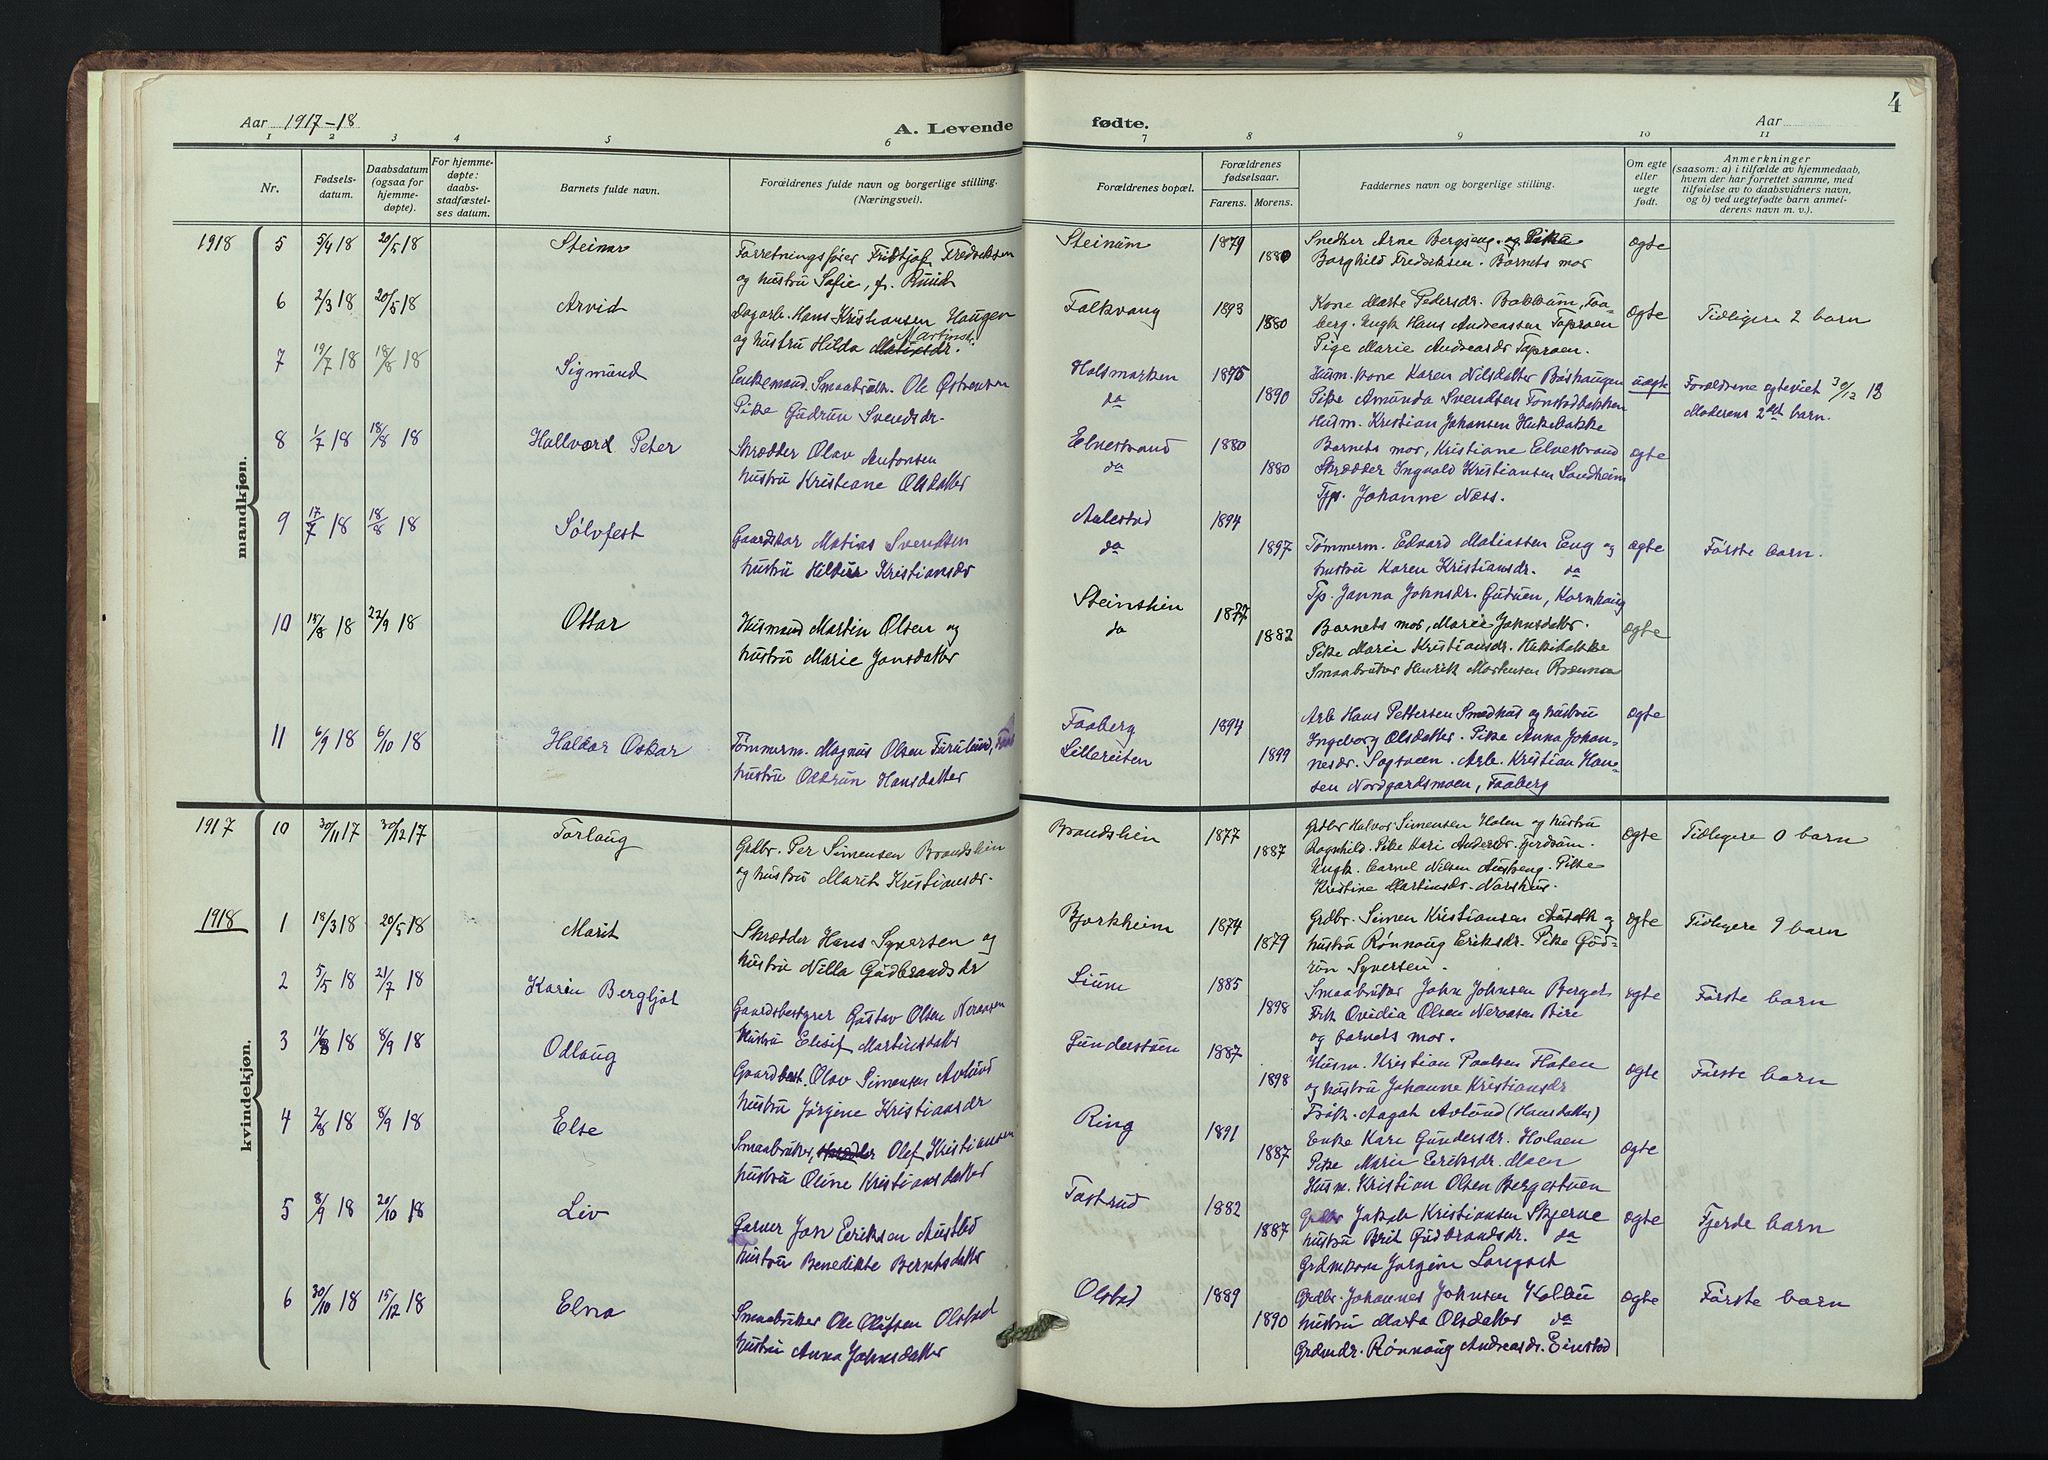 Aar 1917-18
A. Levende fødte.
Aar
4
1 2 3 4 5 6 7 8 9 10 11
Nr.
Fødsels-datum.
Daabsdatum (ogsaa for hjemme-døpte).
For hjemme-døpte: daabs-stadfæstel-ses datum.
Barnets fulde navn.
Forældrenes fulde navn og borgerlige stilling. (Næringsvei).
Forældrenes bopæl.
Forældrenes fødselsaar.
Farens. Morens.
Faddernes navn og borgerlige stilling.
Om egte eller uegte født.
Anmerkninger
(saasom: a) i tilfælde av hjemmedaab,
hvem der har forrettet samme, med
tilføielse av to daabsvidners navn,
og b) ved uegtefødte barn anmel-
derens navn m. v.).
mandkjøn.
1918 5 5/4 18 20/5 18 Steinar
Forretningsfører Fridtjof Fredriksen
og hustru Sofie, f. Ruud
Steinum 1879 1880
Snedker Arne Bergseng og Pike
Borghild Fredriksen. Barnets mor
egte
6 2/3 18 20/5 18 Arvid
Dagarb. Hans Kristiansen Haugen
og hustru Hilda Martinsdr.
Falkvang 1893 1880
Kone Marte Pedersdr. Bakkum, Faa-
berg. Ungk Hans Andreassen
Pige Marie Andreasdr
egte Tidligere 2 barn
7 19/7 18 18/8 18 Sigmund
Enkemand. Smaabruk. Ole Østensen
Pike Gudrun Svendsdr.
Holsmarken da 1875 1890
Husm. kone Karen Nilsdatter Bashaugen
Pike Amunda Svendsen
Husm. Kristian Johansen Hukebakke
uegte Forældrene egteviet 30/12 18
Moderens 2det barn.
8 1/7 18 18/8 18 Hallvard Peter
Skrædder Olav Antonsen
hustru Kristiane Olsdatter
Elvestrand da 1880 1880
Barnets mor, Kristiane Elvestrand
Skrædder Ingvald Kristiansen Sandheim
Tjp. Johanne Næss.
egte
9 17/7 18 18/8 18 Sølvfest
Gaardskar Matias Svendsen
hustru Hildur Kristiansdr
Aulestad da 1894 1897
Tømmerm. Edvard Matiassen Eng og
hustru Karen Kristiansdr. da
Tp. Janna Johnsdr.
egte Første barn.
10 15/8 18 22/9 18 Ottar
Husmand Martin Olsen og
hustru Marie Jonsdatter
Steinslien da 1877 1882
Barnets mor, Marie Johnsdatter.
Pike Marie Kristiansdr. Hukebakke
Smaabruker Henrik Mortensen
egte
11 6/9 18 6/10 18 Haldor Oskar
Tømmerm. Magnus Olsen Furulund,
hustru Oddrun Hansdatter
Faaberg Lillereisten 1894 1899
Arb Hans Pettersen Smedhus og hustru
Ingeborg Olsdatter. Pike Anna Johan-
nesdr. Arb. Kristian Han-
sen Nordgardsmoen, Faaberg
egte
kvindekjøn.
1917 10 30/11 17 30/12 17 Torlaug
Grdbr. Per Simensen Brandslien
og hustru Marit Kristiansdr.
Brandslien 1877 1887
Grdbr Halvor Simensen Holen og hustru
Ragnhild. Pike Kari Andersdr.
Ungk. Carnel Nilsen Austveng. Pike
Kristine Martinsdr.
egte Tidligere 0 barn
1918 1 18/3 18 20/5 18 Marit
Skrædder Hans Syversen og
hustru Nilla Gudbrandsdr
Bjorkheim 1874 1879
Grdbr. Simen Kristiansen og
hustru Rønnaug Eriksdr. Pike Gud-
run Syversen.
egte Tidligere 9 barn
2 5/5 18 21/7 18 Karin Bergljot
Gaardsbestyrer Gustav Olsen
Hustru Elisif Martinsdatter
Lium 1885 1898
Smaabruker John Johnsen Berger
Frk Ovidia Olsen
og barnets mor.
egte Første barn
3 11/8 18 8/9 18 Odlaug
Gaardbest. Olav Simensen Avlund
hustru Jørgine Kristiansdr
Sunderstuen 1887 1898
Husm. Kristian Paulsen Flaten
og hustru Johanne Kristiansdr
Frøk. Aagat Avlund (Hansdatter)
egte Første barn
4 2/8 18 8/9 18 Else
Smaabruker, Olef Kristiansen
hustru Oline Kristiansdatter
Ring 1891 1887
Enke Kari Gundersdr. Holsen
Pike Marie Eriksdr. Moen
Husm. Kristian Olsen Bergestuen
egte
5 8/9 18 20/10 18 Liv
Garver Jon Eriksen Austlid
hustru Benedikte Berntsdatter
Tostrud 1882 1887
Grdbr Jakob Kristiansen Skjerve
hustru Brit Gudbrandsdr. da
Grdmkone Jørgine Langset
egte Fjerde barn
6 30/10 18 15/12 18 Elna
Smaabruker Ole Olufsen Olstad
hustru Anna Johnsdatter
Olstad 1889 1890
Grdbr. Johannes Johnsen Kolbu
hustru Marta Olsdatter da
Grdmdr. Rønnaug Andreasdr. Einstad
egte Første barn